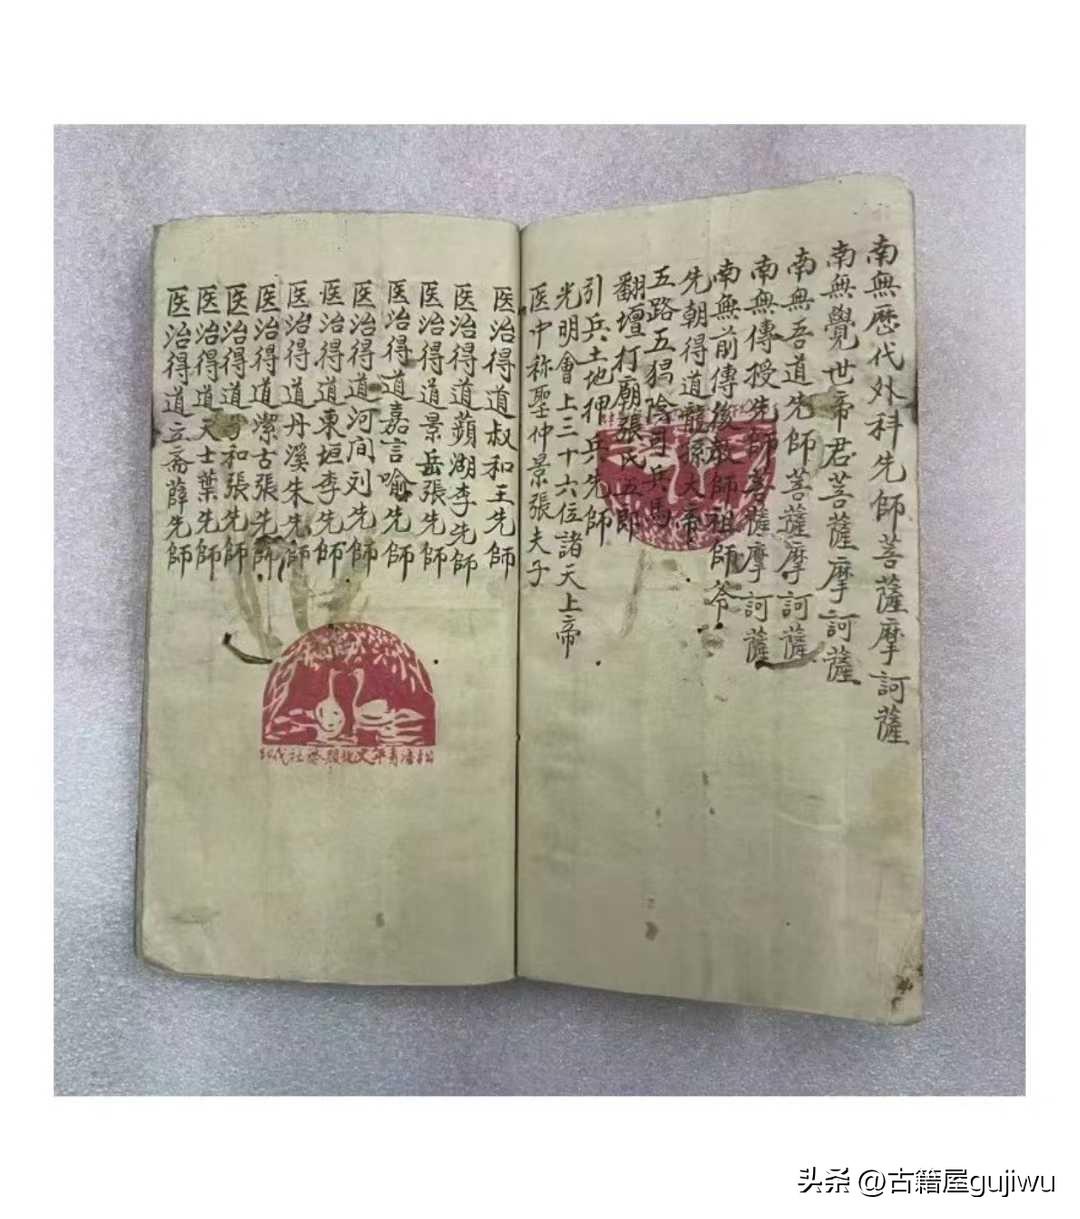 南無歷代外科先師菩薩摩訶薩
南無覺世帝君菩薩摩訶薩
南無吾道先師菩薩摩訶薩
南無傳授先師菩薩摩訶薩
南無前傳後教師祖師爷
先朝得道龍孫大帝
五路五猖陰司兵馬
翻壇打廟張氏五郎
引兵土地押兵先師
光明會上三十六位諸天上帝
医中称聖仲景張夫子
医治得道叔和王先師
医治得道蘋湖李先師
医治得道景岳張先師
医治得道嘉言喻先師
医治得道河间刘先師
医治得道東垣李先師
医治得道丹溪朱先師
医治得道潔古張先師
医治得道子和張先師
医治得道天士葉先師
医治得道立斋薛先師
头条 @古籍屋gujiwu